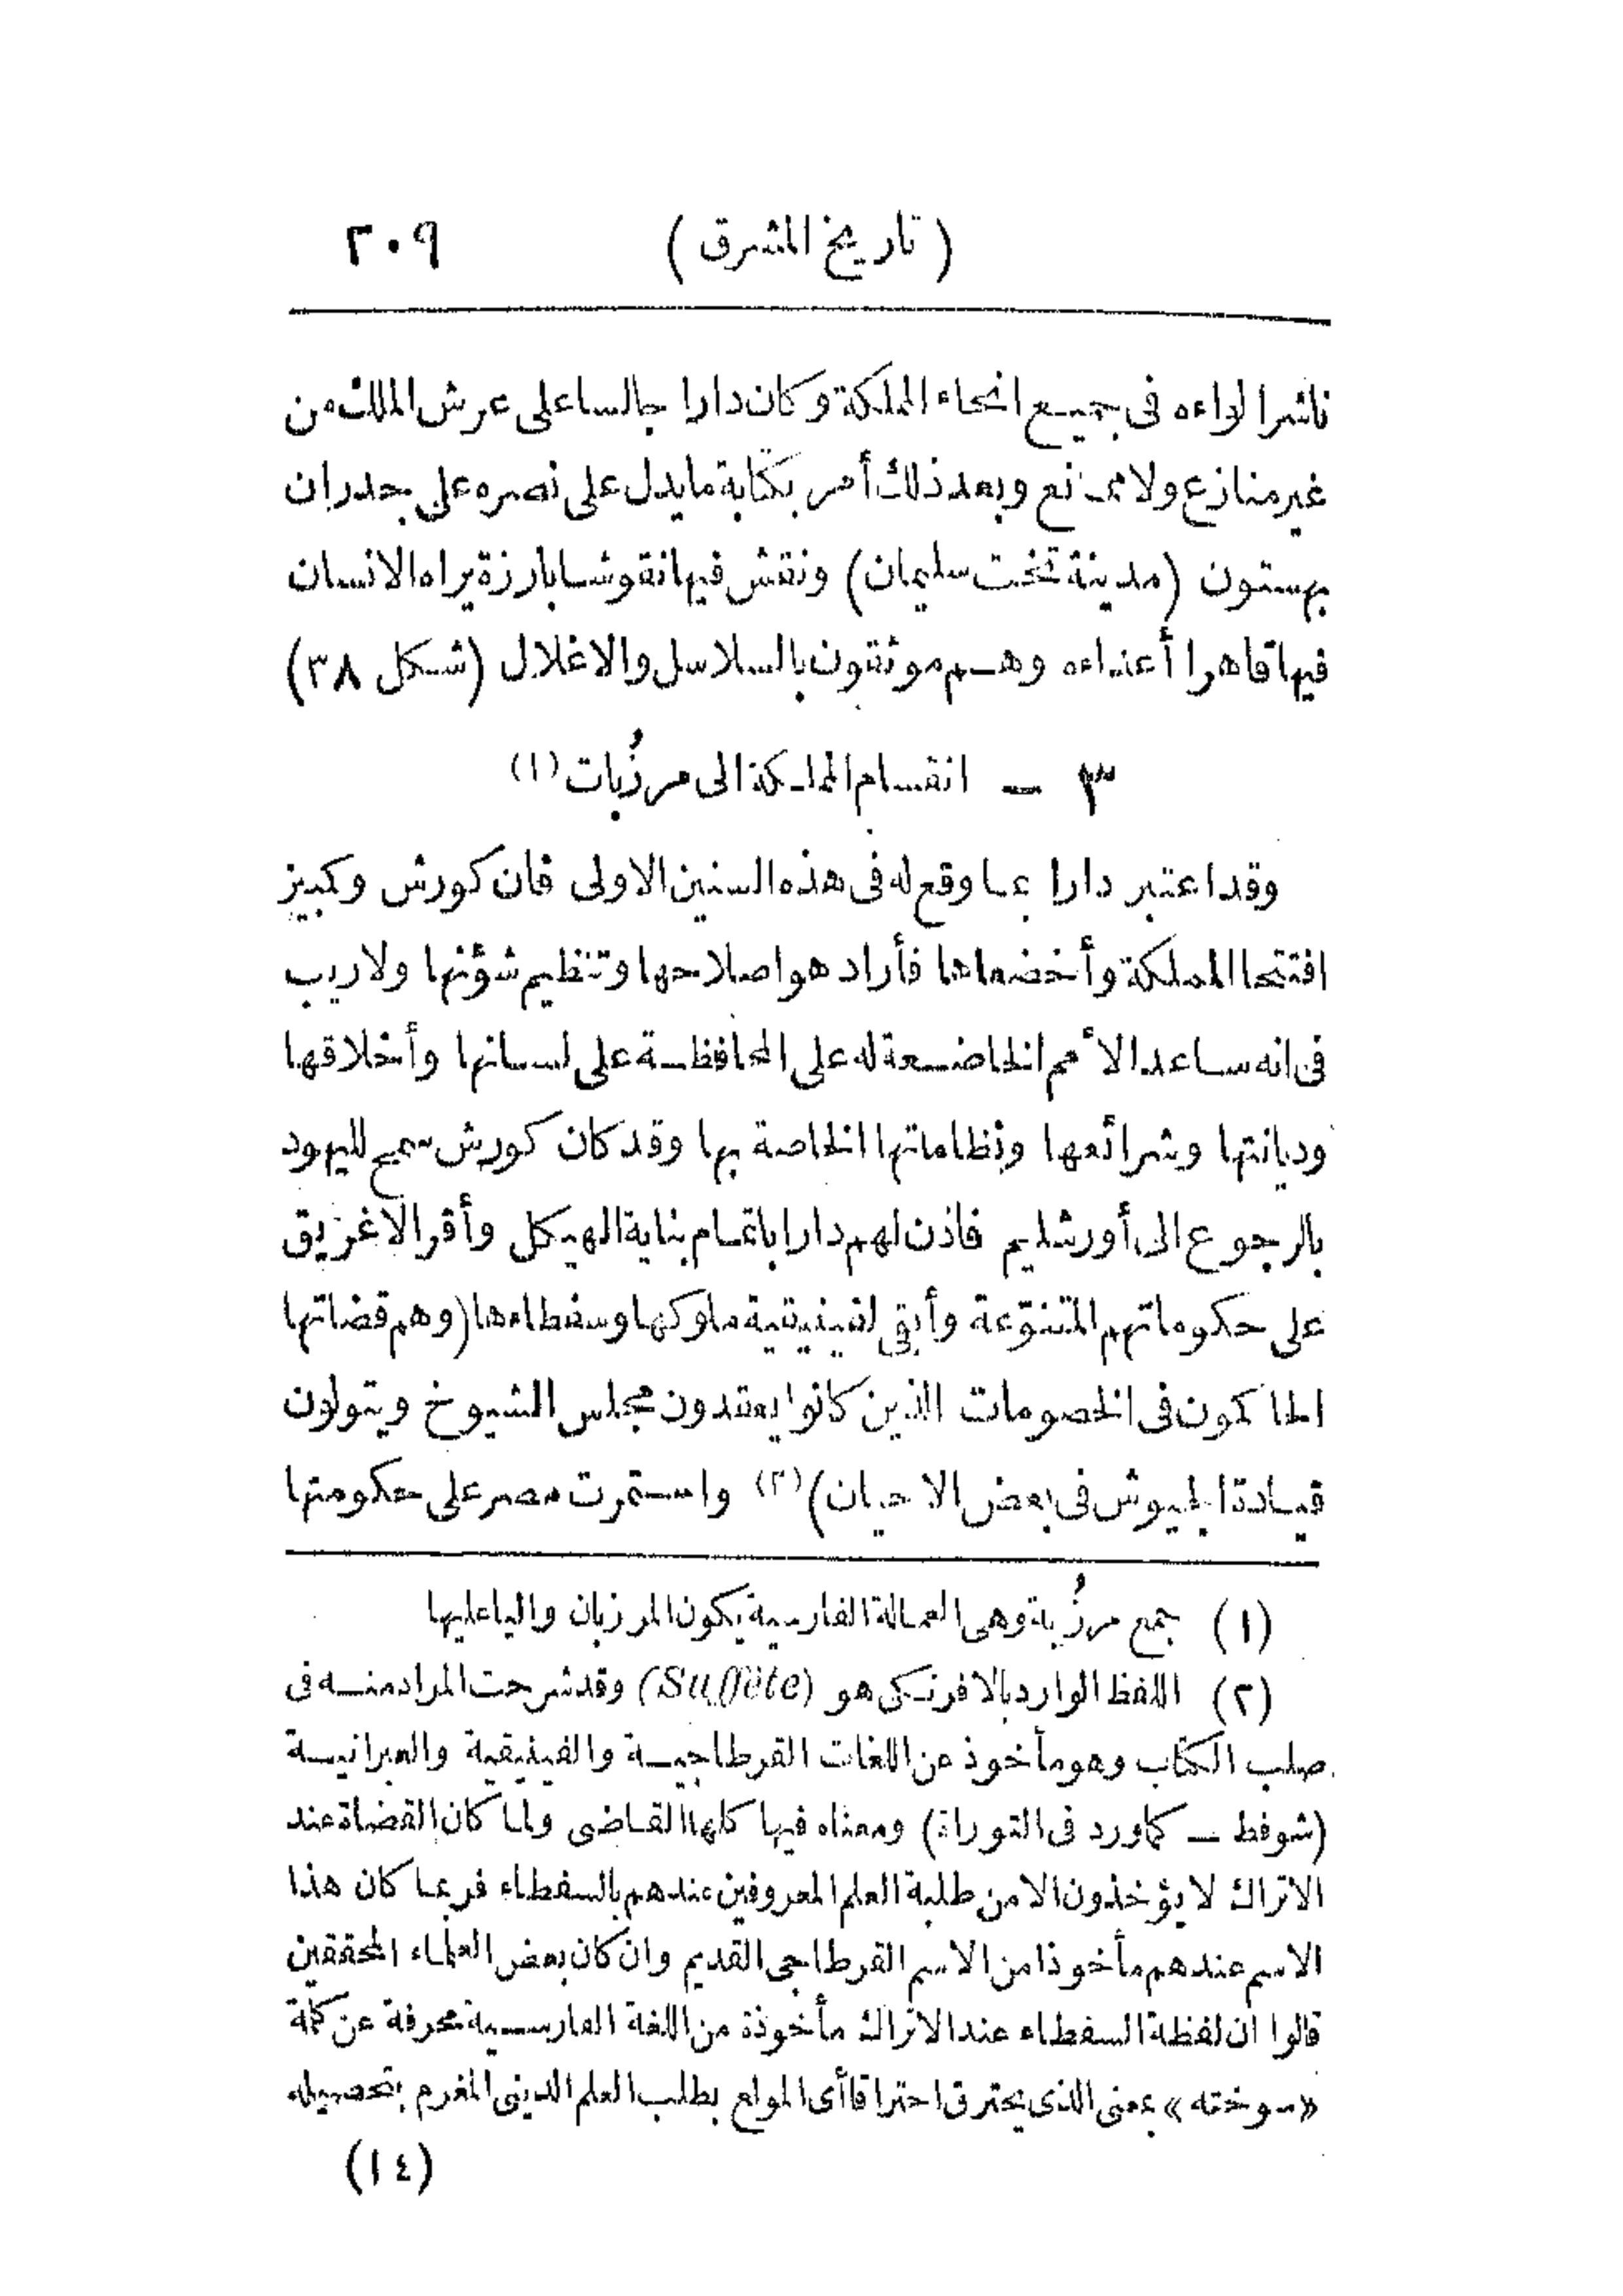 ( تاريخ المشرق ) ٢٠٩
ناشرا لواءه فى جميع انحاء المملكة وكان دارا جالسا على عرش الملك من
غير منازع ولا ممانع وبعد ذلك أمر بكتابة ما يدل على نصره على جدران
بهستون (مدينة تخت سليمان) ونقش فيها نقوشا بارزة يراه الانسان
فيها قاهرا أعداءه وهم موثقون بالسلاسل والاغلال (شكل ٣٨)
٣ — انقسام المملكة الى مرزُبات (١)
وقد اعتبر دارا بما وقع له فى هذه السنين الاولى فان كورش وكمبيز
افتتحا المملكة وأخضعاها فأراد هو اصلاحها وتنظيم شؤنها ولا ريب
فى انه ساعد الأمم الخاضعة له على المحافظة على لسانها وأخلاقها
وديانتها وشرائعها ونظاماتها الخاصة بها وقد كان كورش سمح لليهود
بالرجوع الى أورشليم فاذن لهم دارا باتمام بناية الهيكل وأقر الاغريق
على حكوماتهم المتنوّعة وأبقى لفينيقية ملوكها وسفطاءها (وهم قضاتها
الحاكمون فى الخصومات الذين كانوا يعقدون مجلس الشيوخ ويتولون
قيادة الجيوش فى بعض الاحيان) (٢) واستمرت مصر على حكومتها
(١) جمع مرزُبة وهى العمالة الفارسية يكون المرزبان واليا عليها
(٢) اللفظ الوارد بالافرنكى هو (Suffète) وقد شرحت المراد منه فى
صلب الكتاب وهو مأخوذ عن اللغات القرطاجية والفينيقية والعبرانية
(شوفط — كما ورد فى التوراة) ومعناه فيها كلها القاضى ولما كان القضاة عند
الاتراك لا يؤخذون الا من طلبة العلم المعروفين عندهم بالسفطاء فربما كان هذا
الاسم عندهم مأخوذا من الاسم القرطاجى القديم وان كان بعض العلماء المحققين
قالوا ان لفظة السفطاء عند الاتراك مأخوذة من اللغة الفارسية محرفة عن كلمة
«سوخته» بمعنى الذى يحترق احتراقا أى المولع بطلب العلم الدينى المغرم بتحصيله
(١٤)